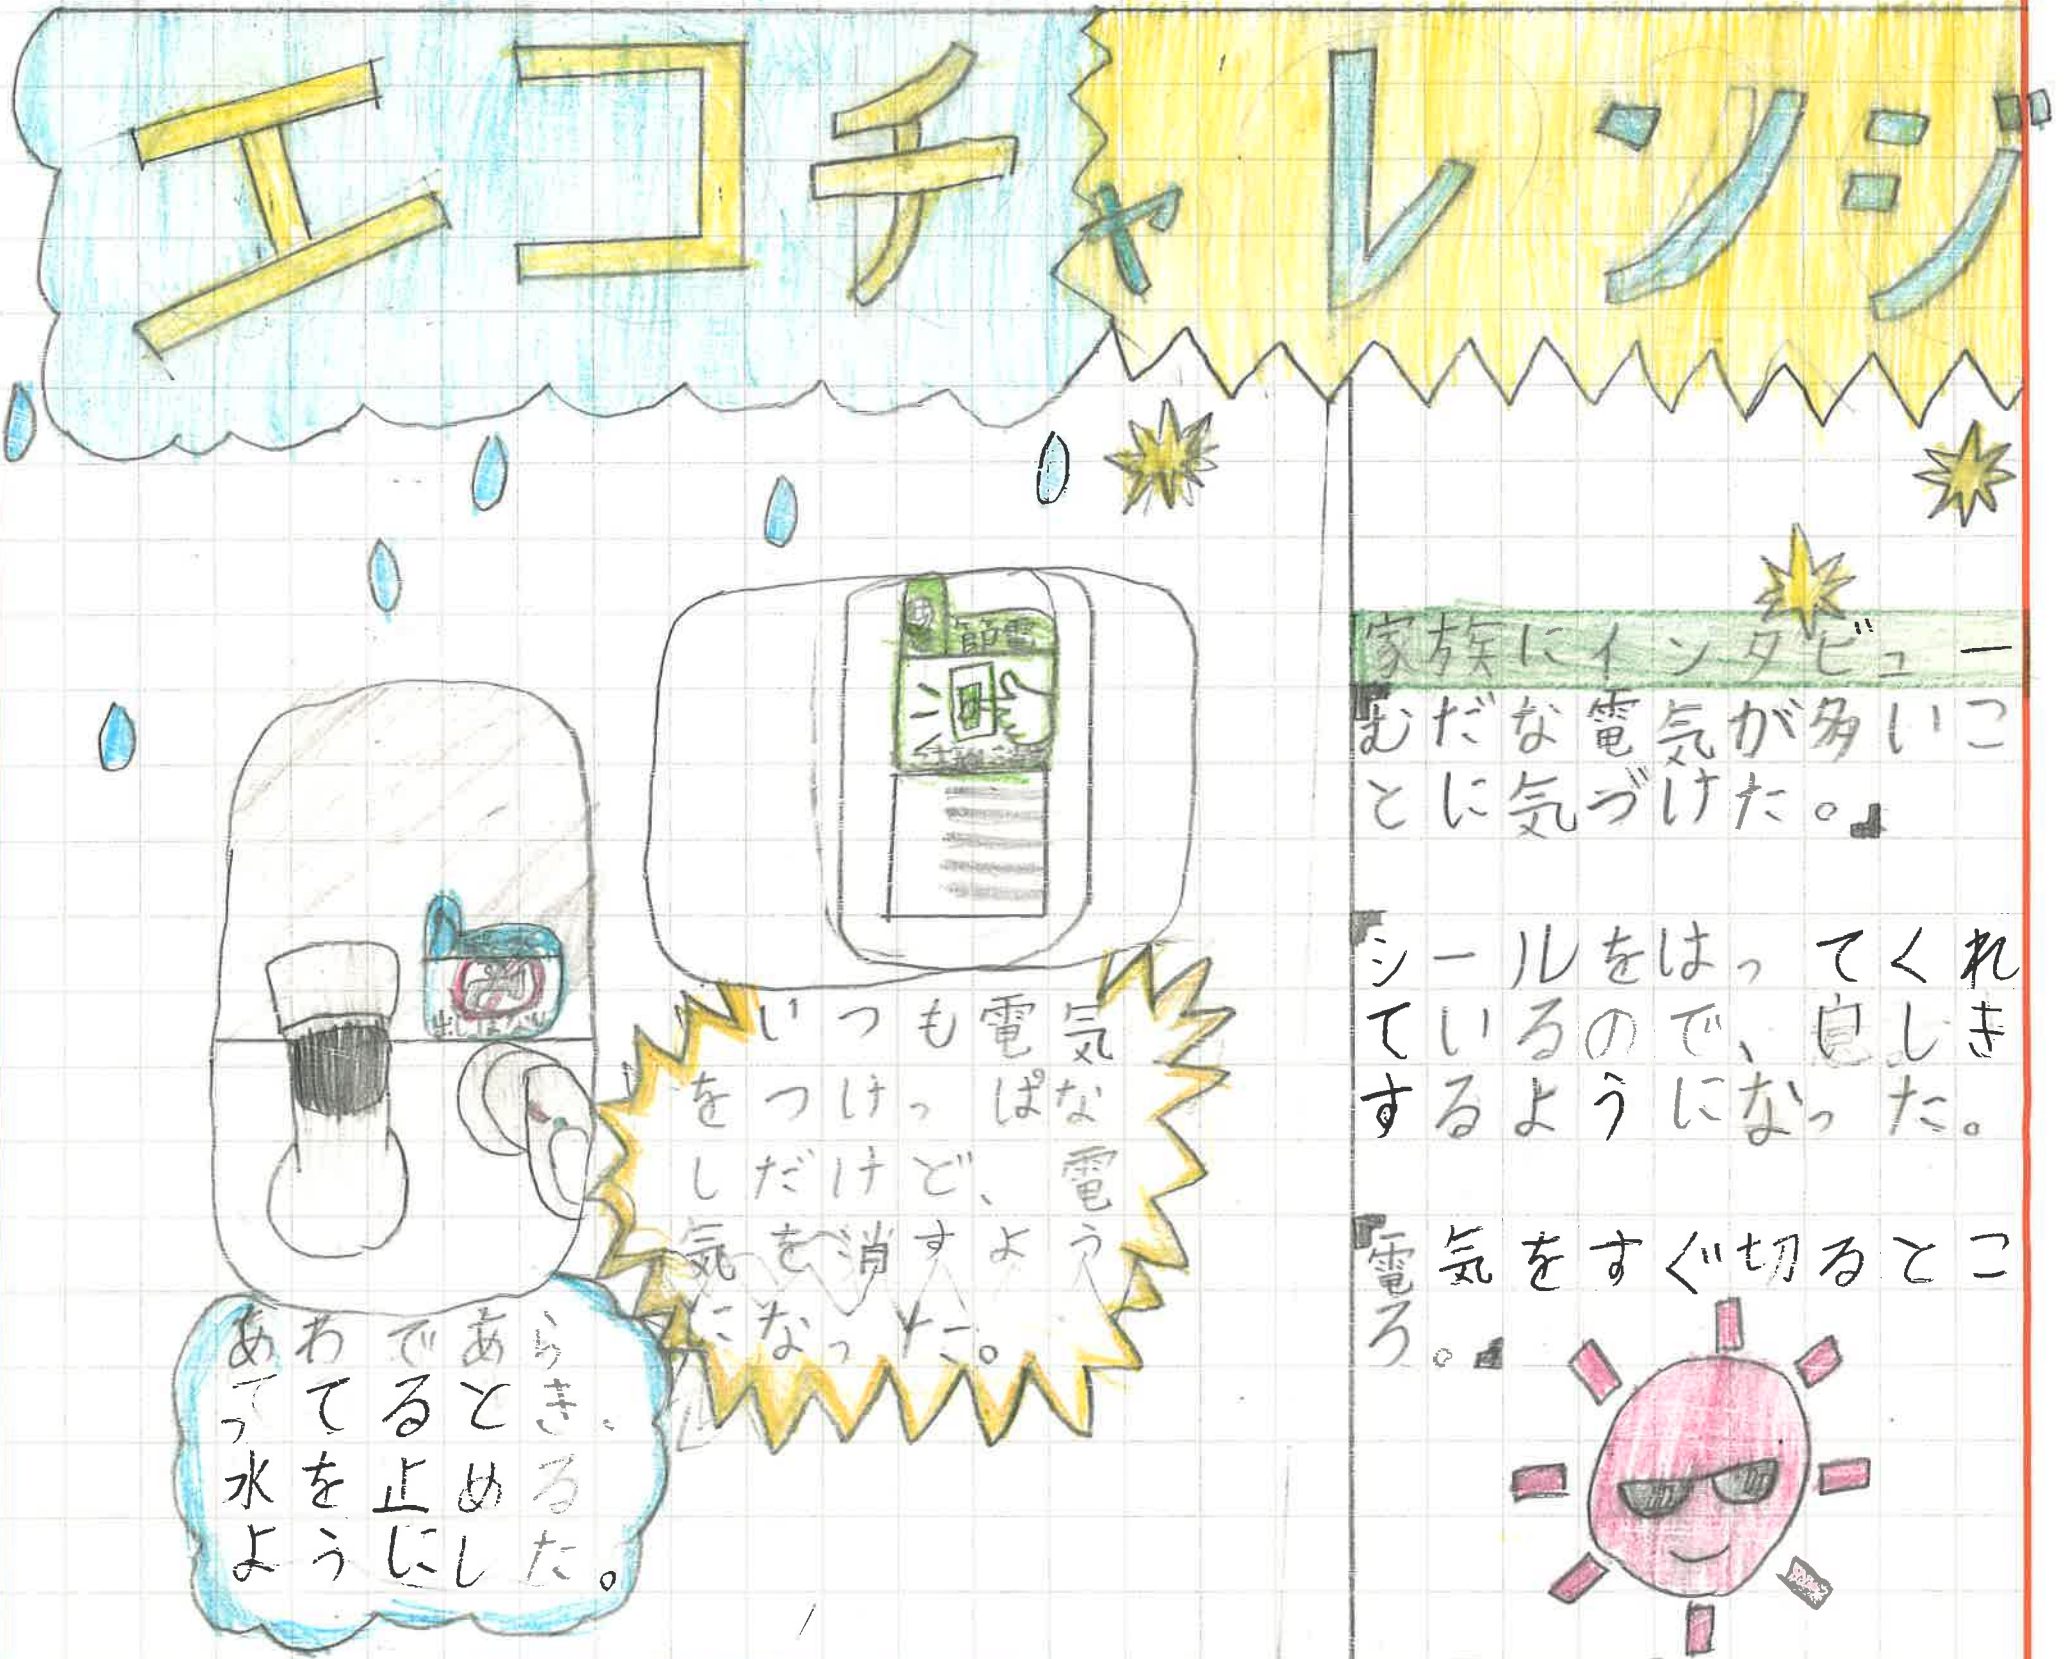 エコチャレンジ
節電
いつも電気
をつけっぱな
しだけど、電
気を消すよう
になった。
あわであら
ってるとき、
水を止める
ようにした。
家族にインタビュー
「むだな電気が多いこ
とに気づけた。」
「シールをはってくれ
ているので、意しき
するようになった。
「電気をすぐ切るとこ
ろ。」